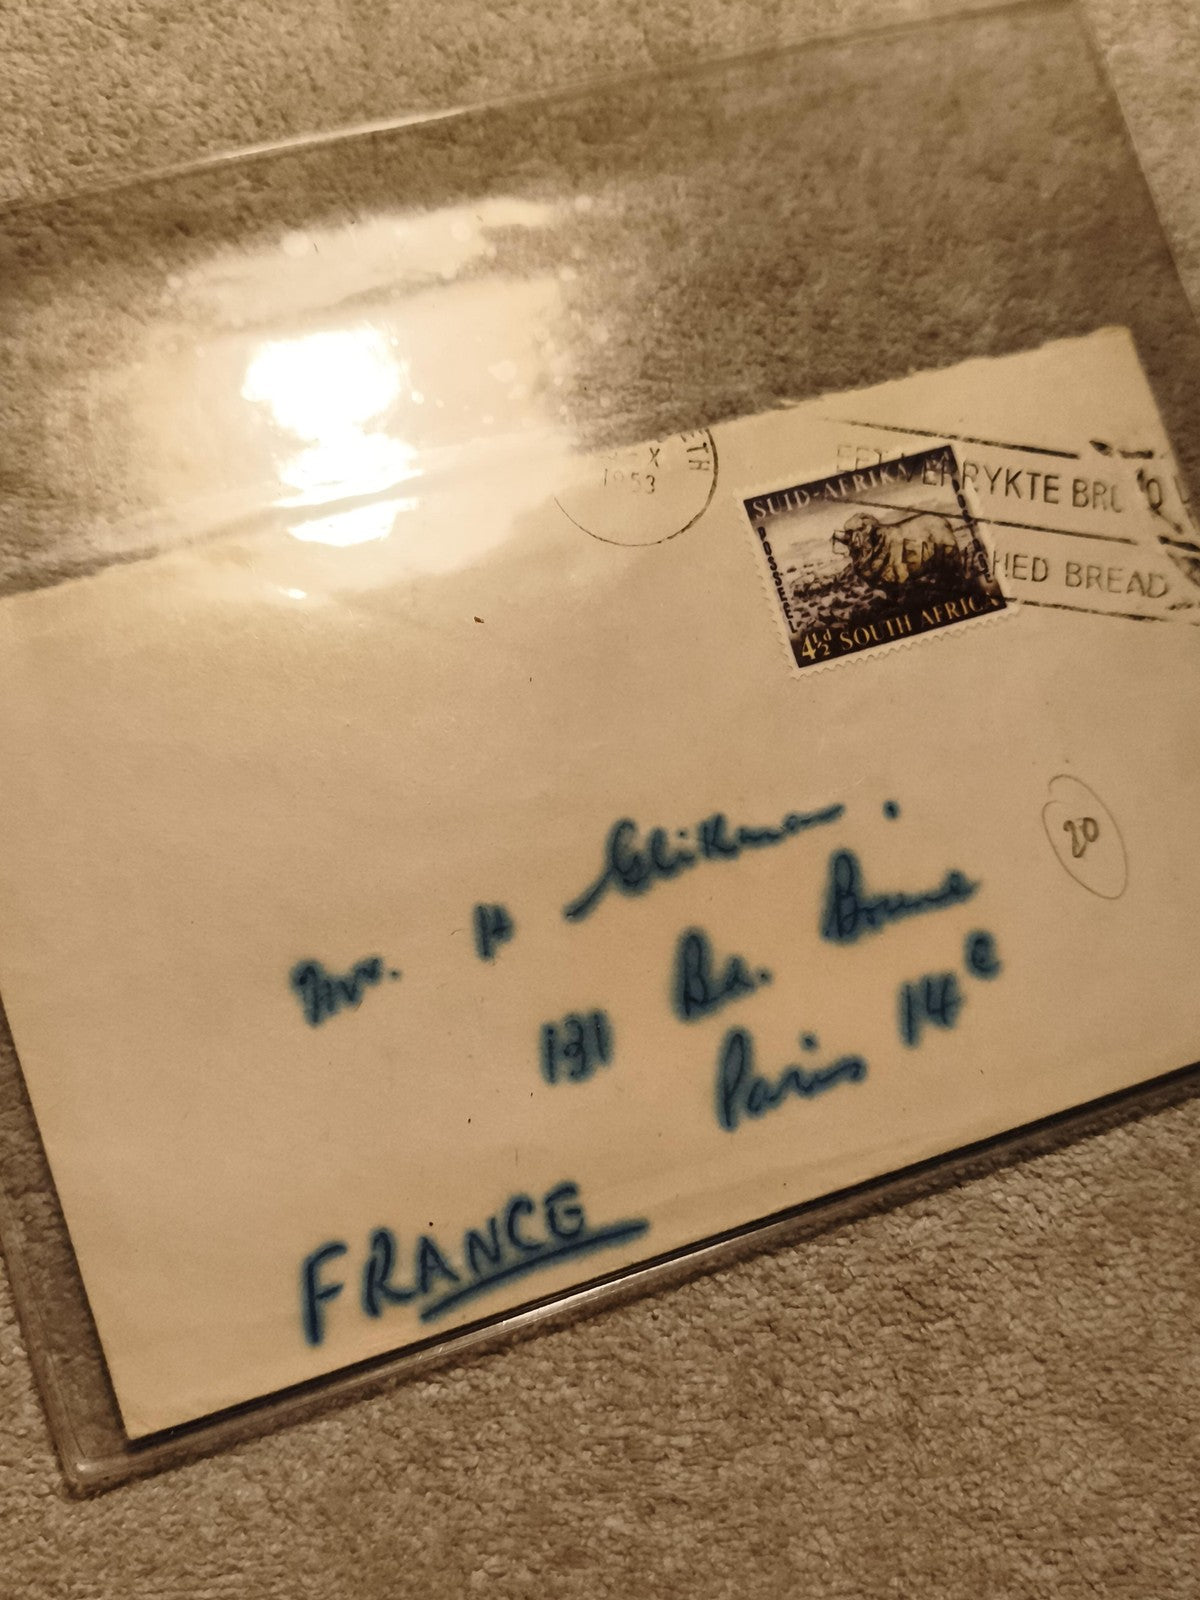 ETH
X
1953
EET VERRYKTE BRO
EAT ENRICHED BREAD
SUID-AFRIKA
POSSEËL
4½d SOUTH AFRICA
20
Mr. H
131 Bd. Brune
Paris 14e
FRANCE